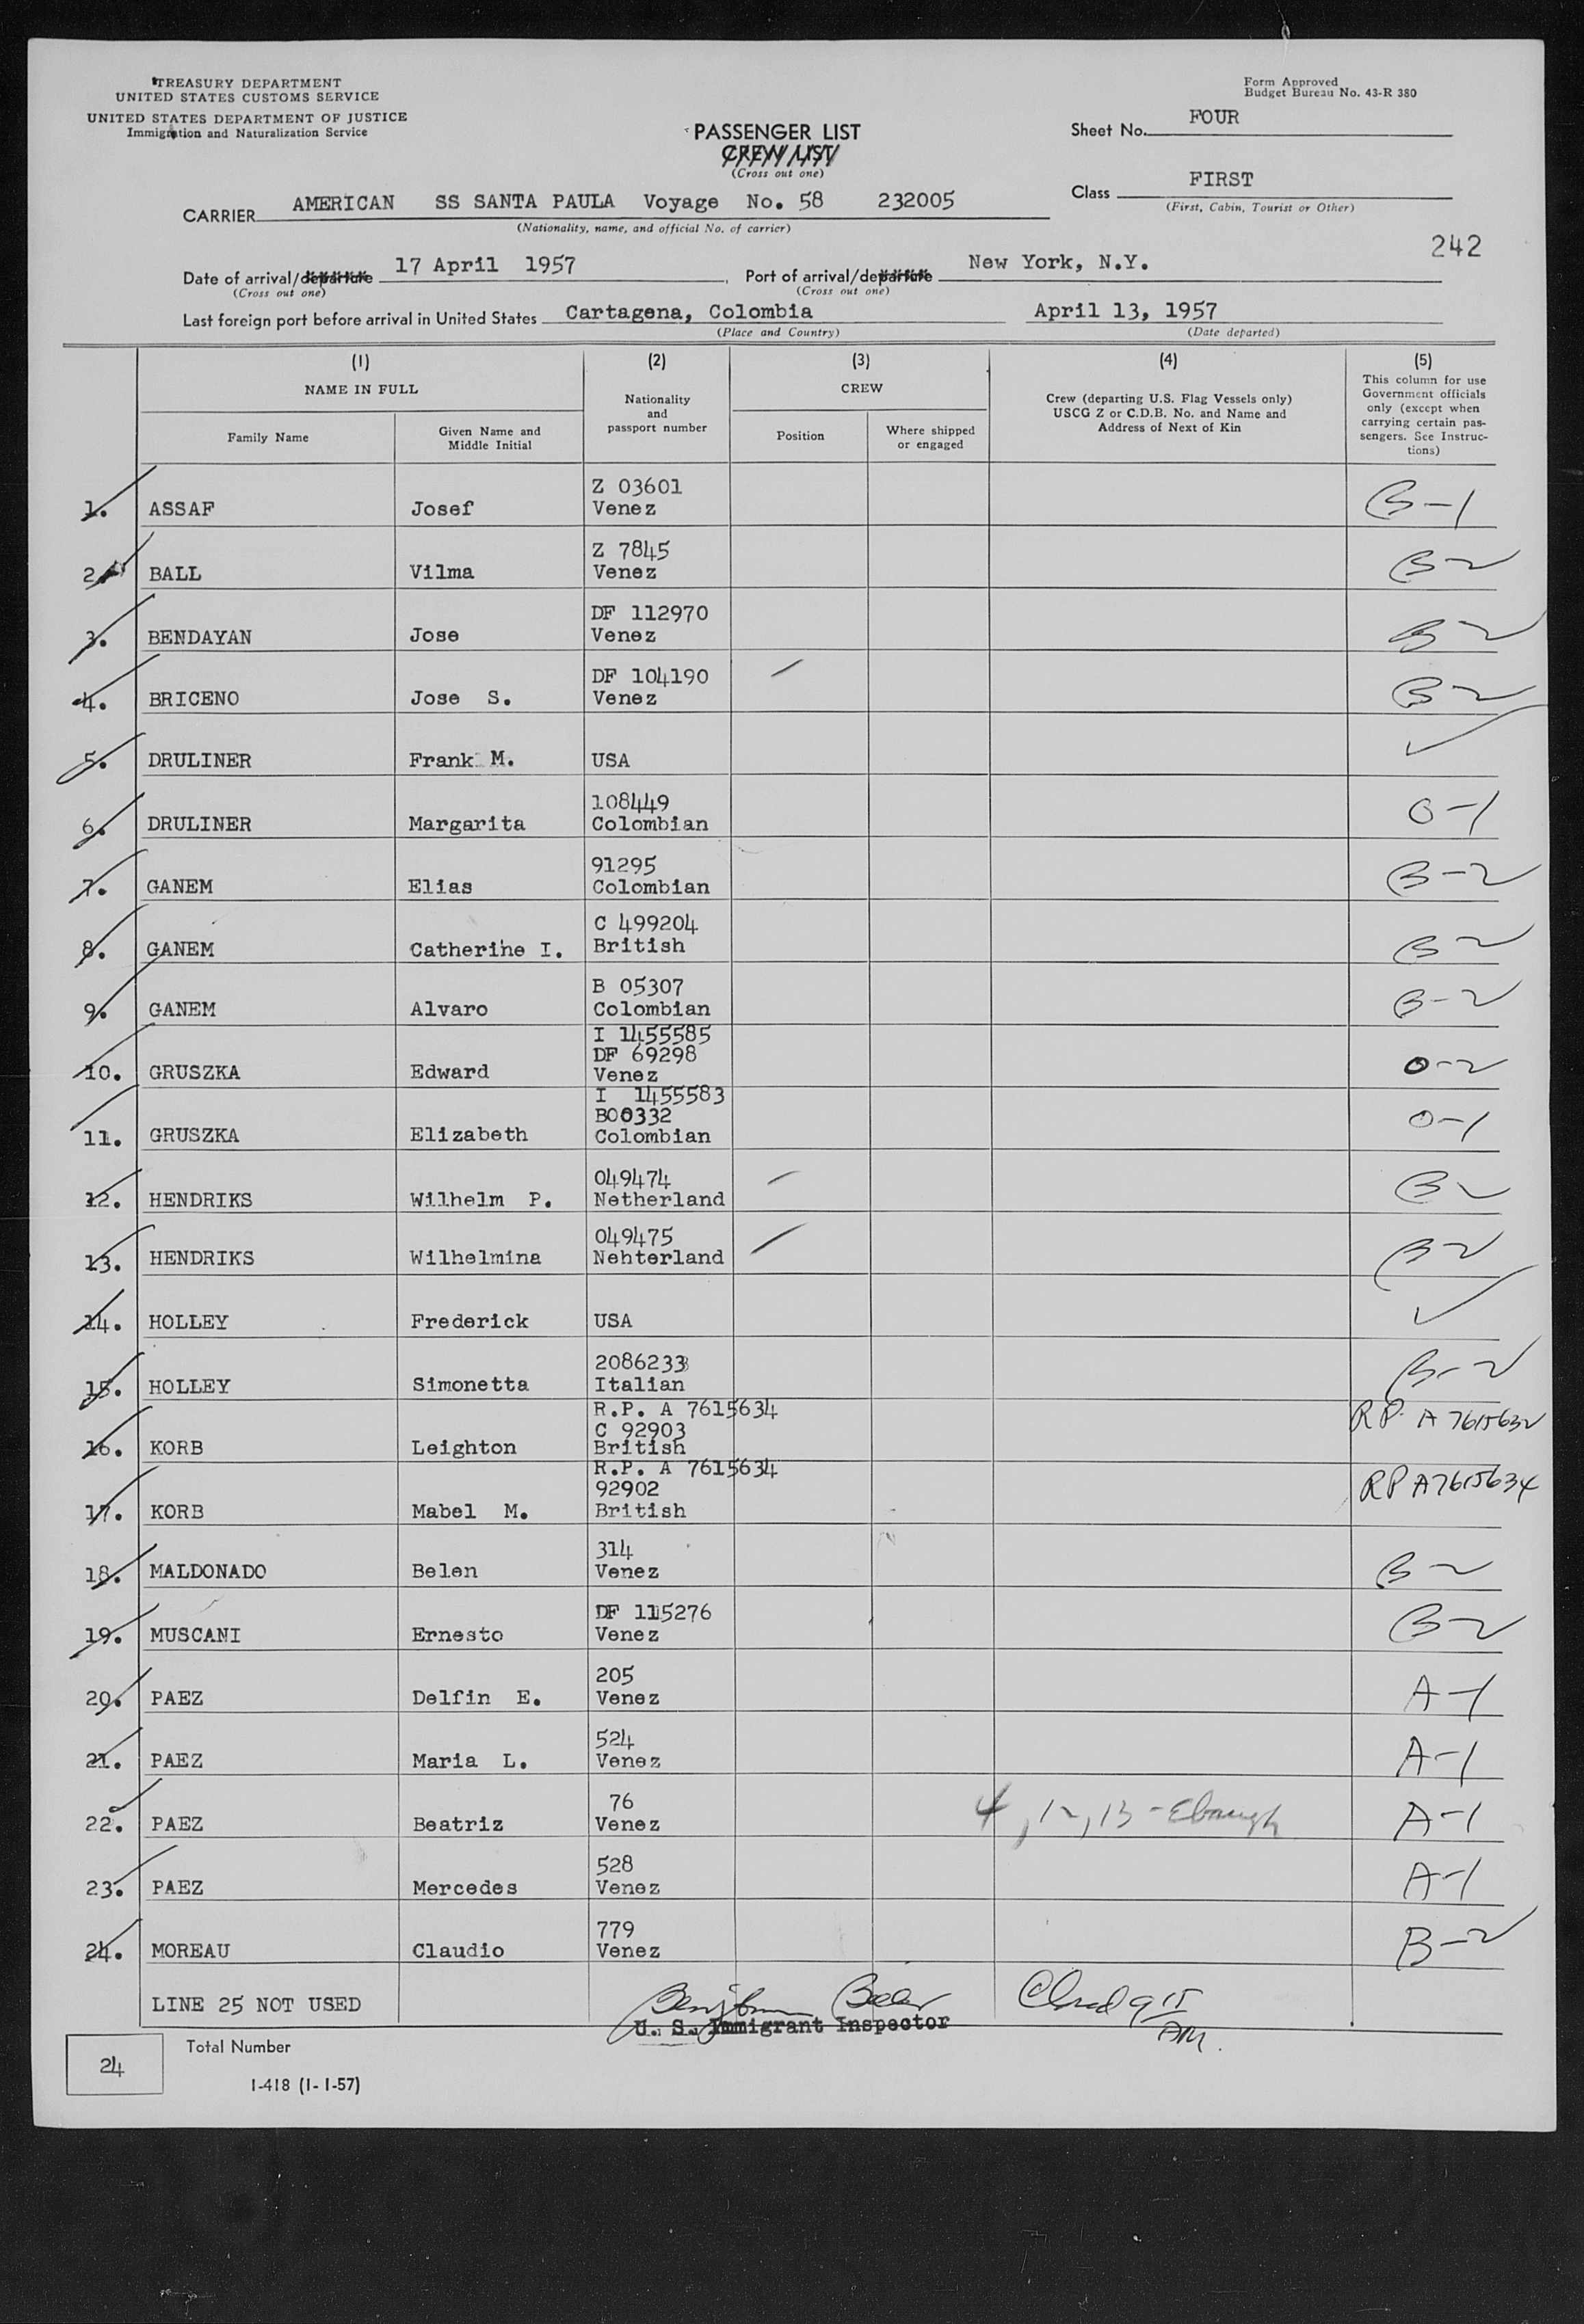 TREASURY DEPARTMENT
UNITED STATES CUSTOMS SERVICE
UNITED STATES DEPARTMENT OF JUSTICE
Immigration and Naturalization Service
Form Approved
Budget Bureau No. 43-R 380
PASSENGER LIST
CREW LIST
(Cross out one)
Sheet No. FOUR
Class FIRST
(First, Cabin, Tourist or Other)
CARRIER AMERICAN SS SANTA PAULA Voyage No. 58 232005
(Nationality, name, and official No. of carrier)
242
Date of arrival/departure 17 April 1957 Port of arrival/departure New York, N.Y.
(Cross out one) (Cross out one)
Last foreign port before arrival in United States Cartagena, Colombia April 13, 1957
(Place and Country) (Date departed)
(1) (2) (3) (4) (5)
NAME IN FULL
Family Name
Given Name and
Middle Initial
Nationality
and
passport number
CREW
Position
Where shipped
or engaged
Crew (departing U.S. Flag Vessels only)
USCG Z or C.D.B. No. and Name and
Address of Next of Kin
This column for use
Government officials
only (except when
carrying certain pas-
sengers. See Instruc-
tions)
Z 03601
1. ASSAF Josef Venez B-1
Z 7845
2. BALL Vilma Venez B-2
DF 112970
3. BENDAYAN Jose Venez B-2
DF 104190
4. BRICENO Jose S. Venez B-2
5. DRULINER Frank M. USA ✓
108449
6. DRULINER Margarita Colombian O-1
91295
7. GANEM Elias Colombian B-2
C 499204
8. GANEM Catherine I. British B-2
B 05307
9. GANEM Alvaro Colombian B-2
I 1455585
DF 69298
10. GRUSZKA Edward Venez O-2
I 1455583
B00332
11. GRUSZKA Elizabeth Colombian O-1
049474
12. HENDRIKS Wilhelm P. Netherland B-2
049475
13. HENDRIKS Wilhelmina Nehterland B-2
14. HOLLEY Frederick USA ✓
2086233
15. HOLLEY Simonetta Italian B-2
R.P. A 7615634
C 92903
16. KORB Leighton British RP A 7615632
R.P. A 7615634
92902
17. KORB Mabel M. British RP A7615634
314
18. MALDONADO Belen Venez B-2
DF 115276
19. MUSCANI Ernesto Venez B-2
205
20. PAEZ Delfin E. Venez A-1
524
21. PAEZ Maria L. Venez A-1
76
22. PAEZ Beatriz Venez 4, 12, 13 - Ebaugh A-1
528
23. PAEZ Mercedes Venez A-1
779
24. MOREAU Claudio Venez B-2
LINE 25 NOT USED
Benjamin
U. S. Immigrant Inspector
915
AM.
24
Total Number
I-418 (1-1-57)